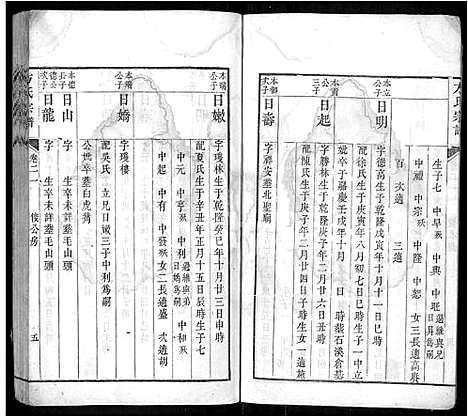 方氏宗譜
生子七 中早殁 中興 中旺過繼與兄日昇為嗣
中禮 中宗殁 中 女三長適高
百 次適 三適
本立公子
日明 字德高生于乾隆戊寅年十月十一日巳時
卒于嘉慶壬戌年十月 日時葬石溪倉基
配徐氏生于庚寅年八月初七日巳時生子一中立
本 公三子
日起 字勝林生于 年二月二十六日丑時
配陳氏生于庚子年二月廿四日子時生女一適施
公次子
日壽 字祥安葬北聖廟
本 公子
日嫩 字璞林生于乾隆癸巳年十月廿三日申時
配夏氏生于辛丑年正月十五日辰時生子七
中元 中亨殁 中利日嬌為嗣
中起 中有 中發殁 女二長適盛 次適胡
本瑞公子
日嬌 字璞樓
配吳氏 立兄日嫩三子中利為嗣
公世卒葬白虎翥
本德公長子
日山 字 生卒未詳葬毛山頭
本德公次子
日龍 字 生卒未詳葬毛山頭
氏宗譜 卷二 俊公房 五